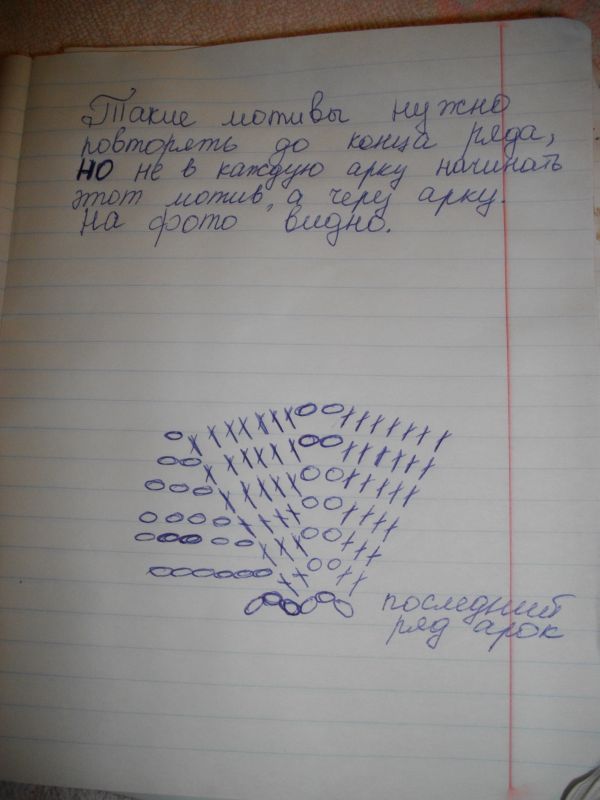 Такие мотивы нужно
повторять до конца ряда,
НО не в каждую арку начинать
этот мотив, а через арку.
На фото видно.
последний
ряд арок